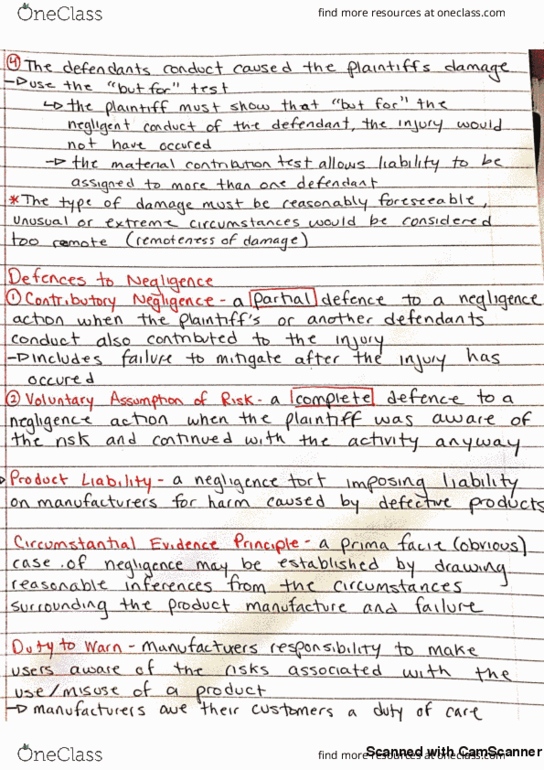 OneClass
find more resources at oneclass.com
④ The defendants conduct caused the plaintiffs damage
→ use the "but for" test
↳ the plaintiff must show that "but for" the
negligent conduct of the defendant, the injury would
not have occured
→ the material contribution test allows liability to be
assigned to more than one defendant
* The type of damage must be reasonably foreseeable,
unusual or extreme circumstances would be considered
too remote (remoteness of damage)
Defences to Negligence
① Contributory Negligence - a partial defence to a negligence
action when the plaintiff's or another defendants
conduct also contributed to the injury
→ includes failure to mitigate after the injury has
occured
② Voluntary Assumption of Risk - a complete defence to a
negligence action when the plaintiff was aware of
the risk and continued with the activity anyway
Product Liability - a negligence tort imposing liability
on manufacturers for harm caused by defective products
Circumstantial Evidence Principle - a prima facie (obvious)
case of negligence may be established by drawing
reasonable inferences from the circumstances
surrounding the product manufacture and failure
Duty to Warn - manufacturers responsibility to make
users aware of the risks associated with the
use/misuse of a product
→ manufacturers owe their customers a duty of care
OneClass
find more resources at oneclass.com
Scanned with CamScanner